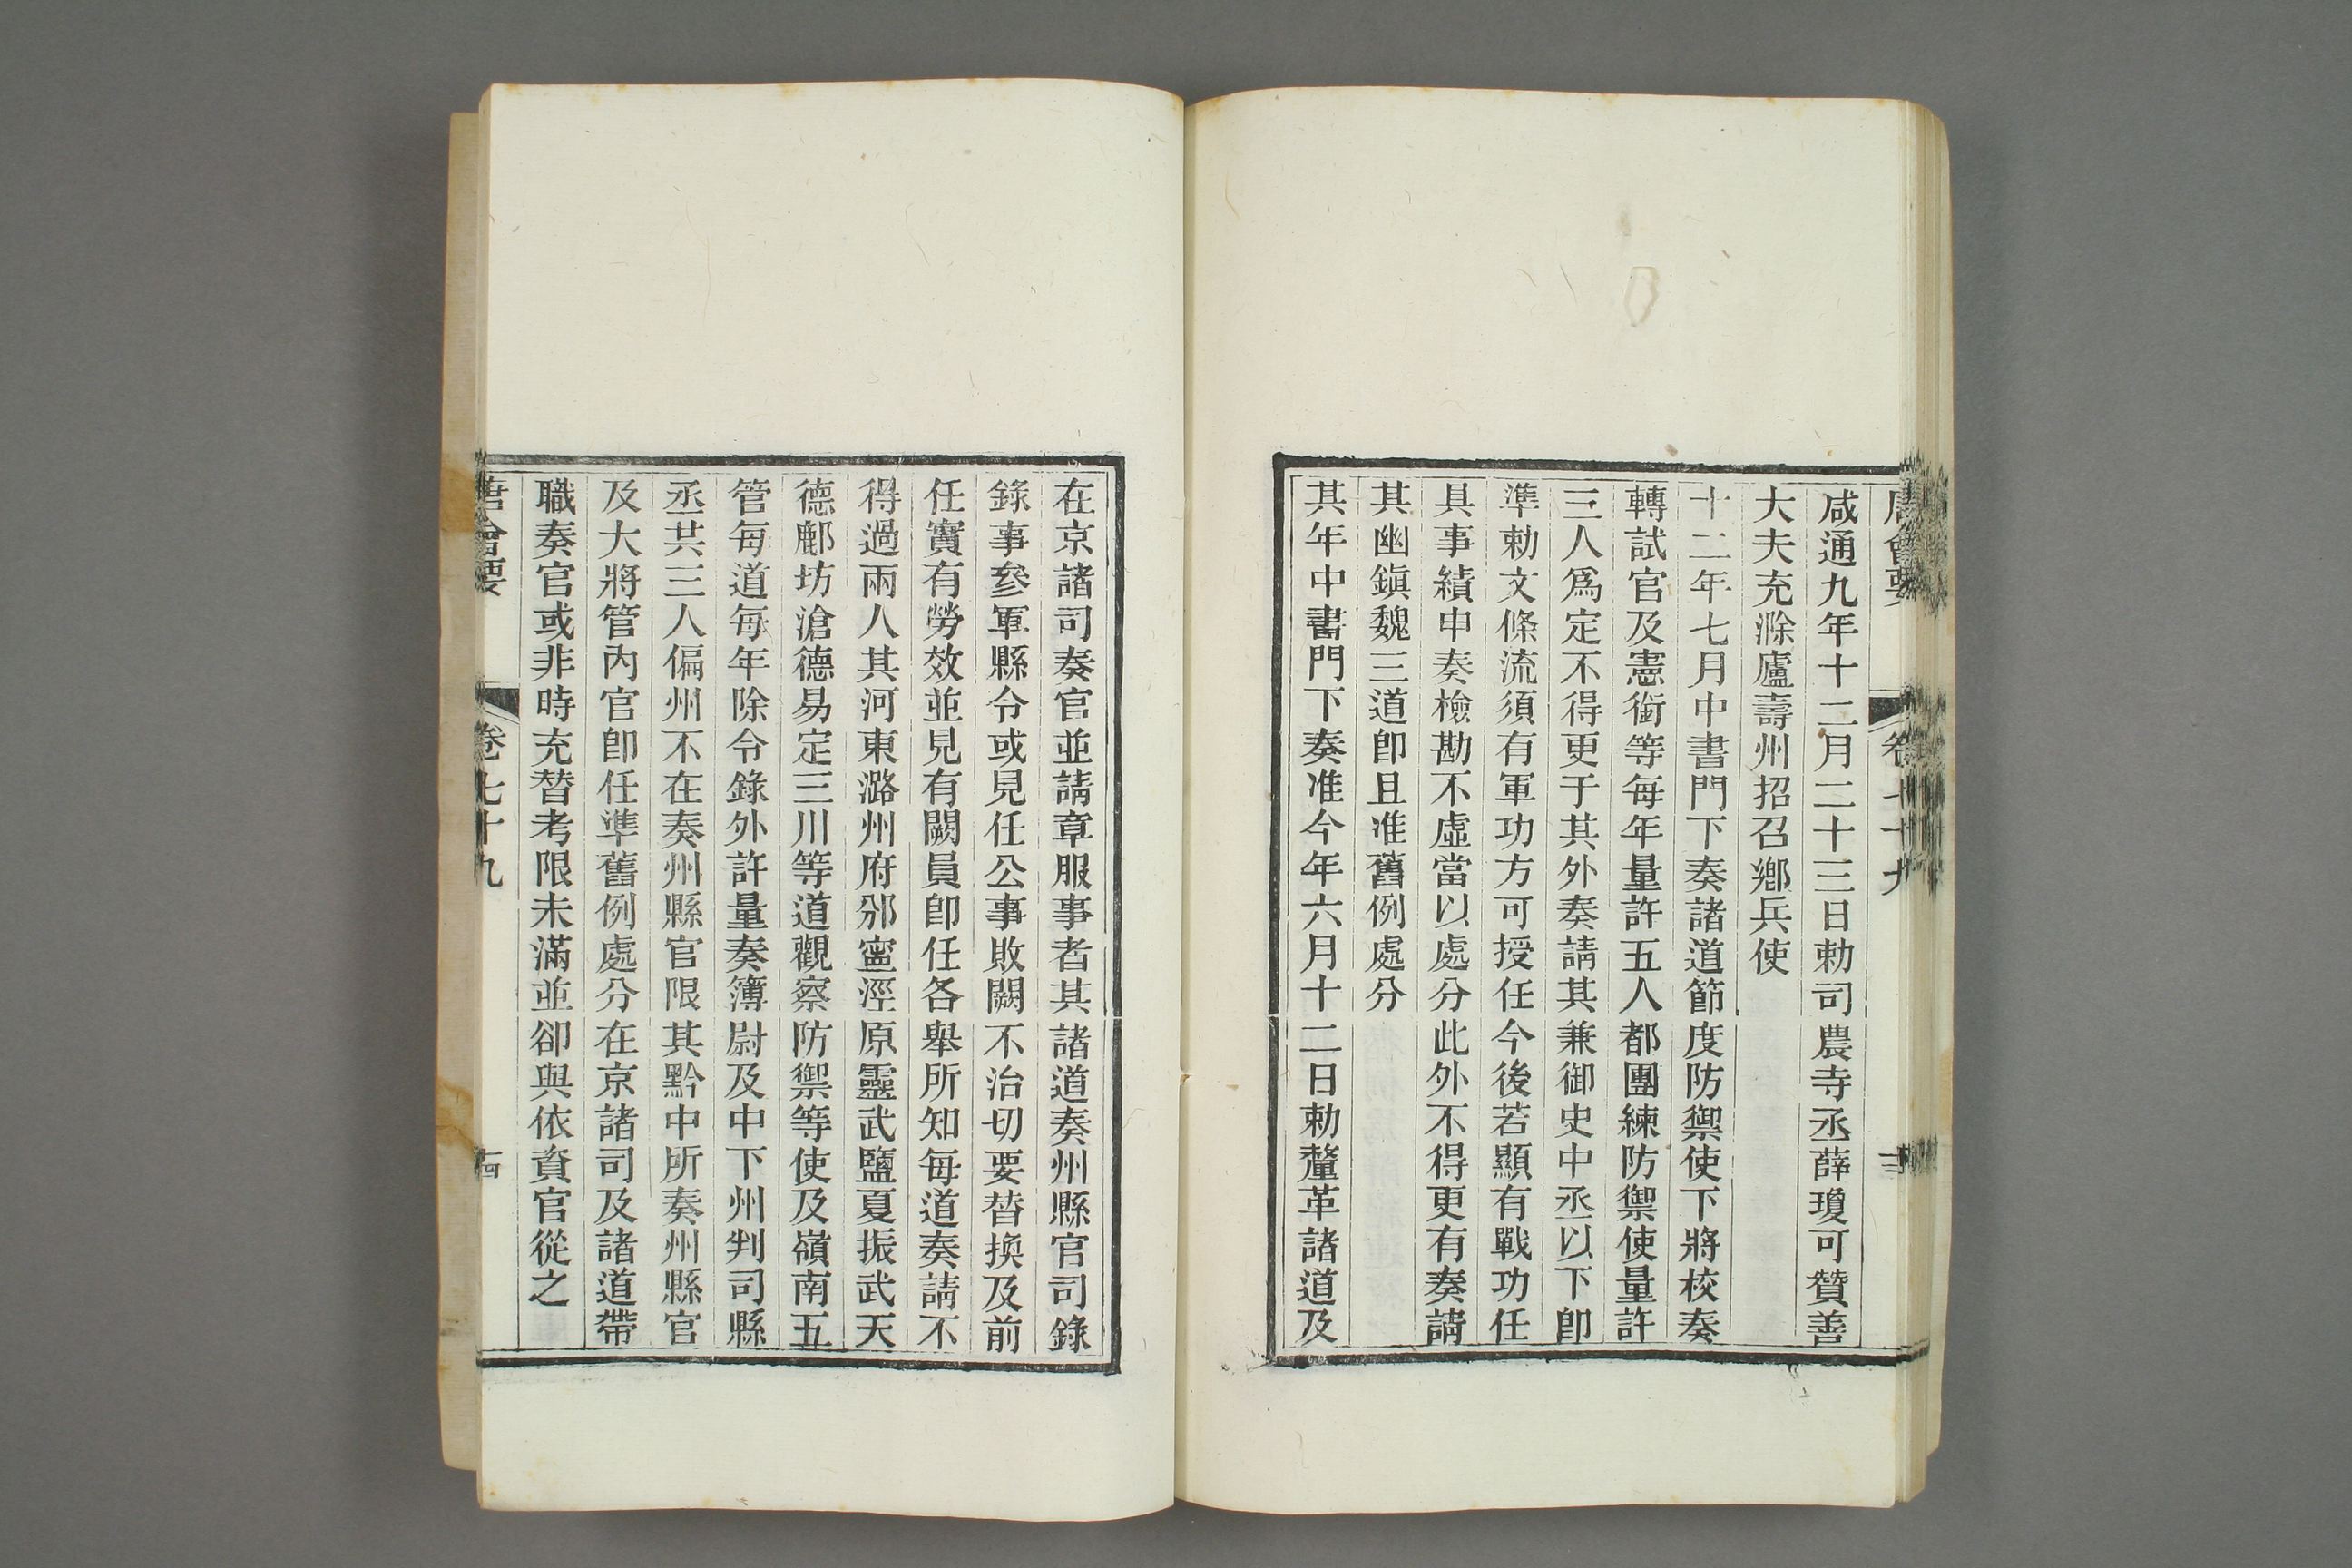 唐會要 卷七十九 十三
咸通九年十二月二十三日勅司農寺丞薛瓊可贊善
大夫充滁廬壽州招召鄕兵使
十二年七月中書門下奏諸道節度防禦使下將校奏
轉試官及憲銜等每年量許五人都團練防禦使量許
三人爲定不得更于其外奏請其兼御史中丞以下卽
準勅文條流須有軍功方可授任今後若顯有戰功任
具事績申奏檢勘不虛當以處分此外不得更有奏請
其幽鎭魏三道卽且准舊例處分
其年中書門下奏准今年六月十二日勅釐革諸道及
在京諸司奏官並請章服事者其諸道奏州縣官司錄
錄事參軍縣令或見任公事敗闕不治切要替換及前
任實有勞效並見有闕員卽任各舉所知每道奏請不
得過兩人其河東潞州府邠寧涇原靈武鹽夏振武天
德鄜坊滄德易定三川等道觀察防禦等使及嶺南五
管每道每年除令錄外許量奏簿尉及中下州判司縣
丞共三人偏州不在奏州縣官限其黔中所奏州縣官
及大將管內官卽任準舊例處分在京諸司及諸道帶
職奏官或非時充替考限未滿並卻與依資官從之
唐會要 卷七十九 十四